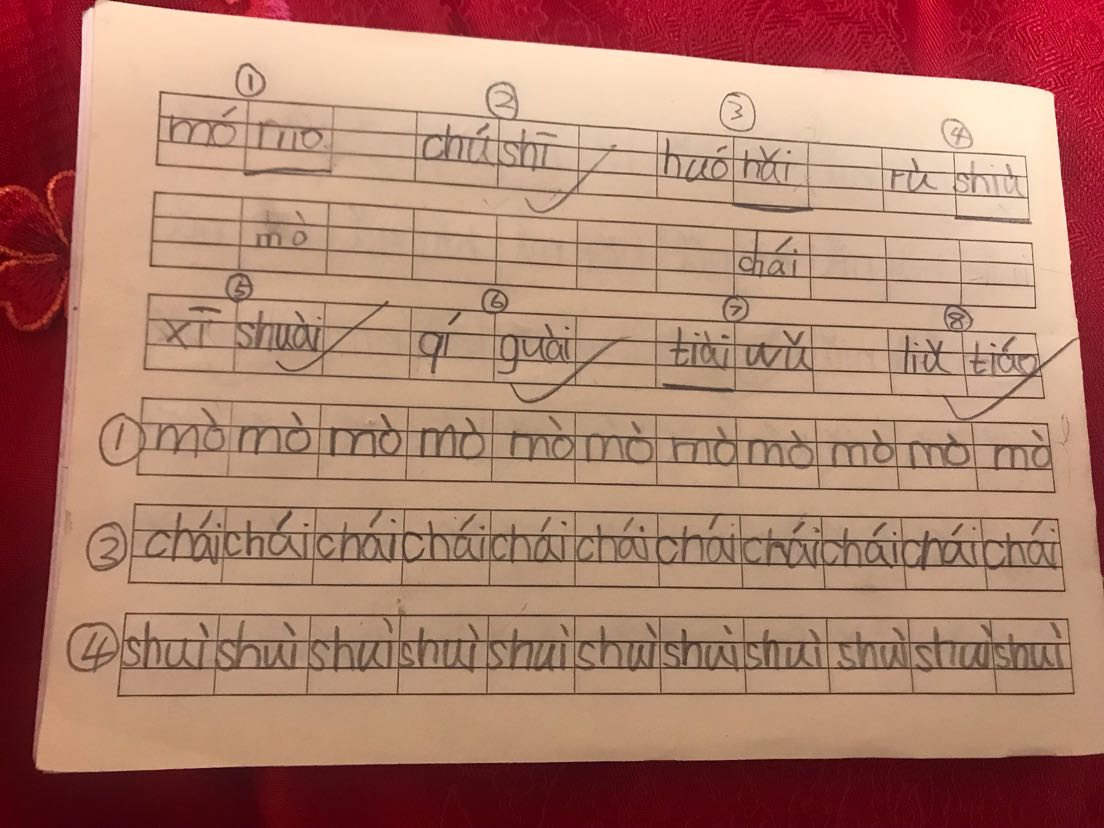 ① ② ③ ④
mó mo chú shī huó hǎi rù shiù
mò chái
⑤ ⑥ ⑦ ⑧
xī shuài qí guài tiài wǔ liǔ tiáo
① mò mò mò mò mò mò mò mò mò mò mò
③ chái chái chái chái chái chái chái chái chái chái chái
④ shuì shuì shuì shuì shuì shuì shuì shuì shuì shuì shuì